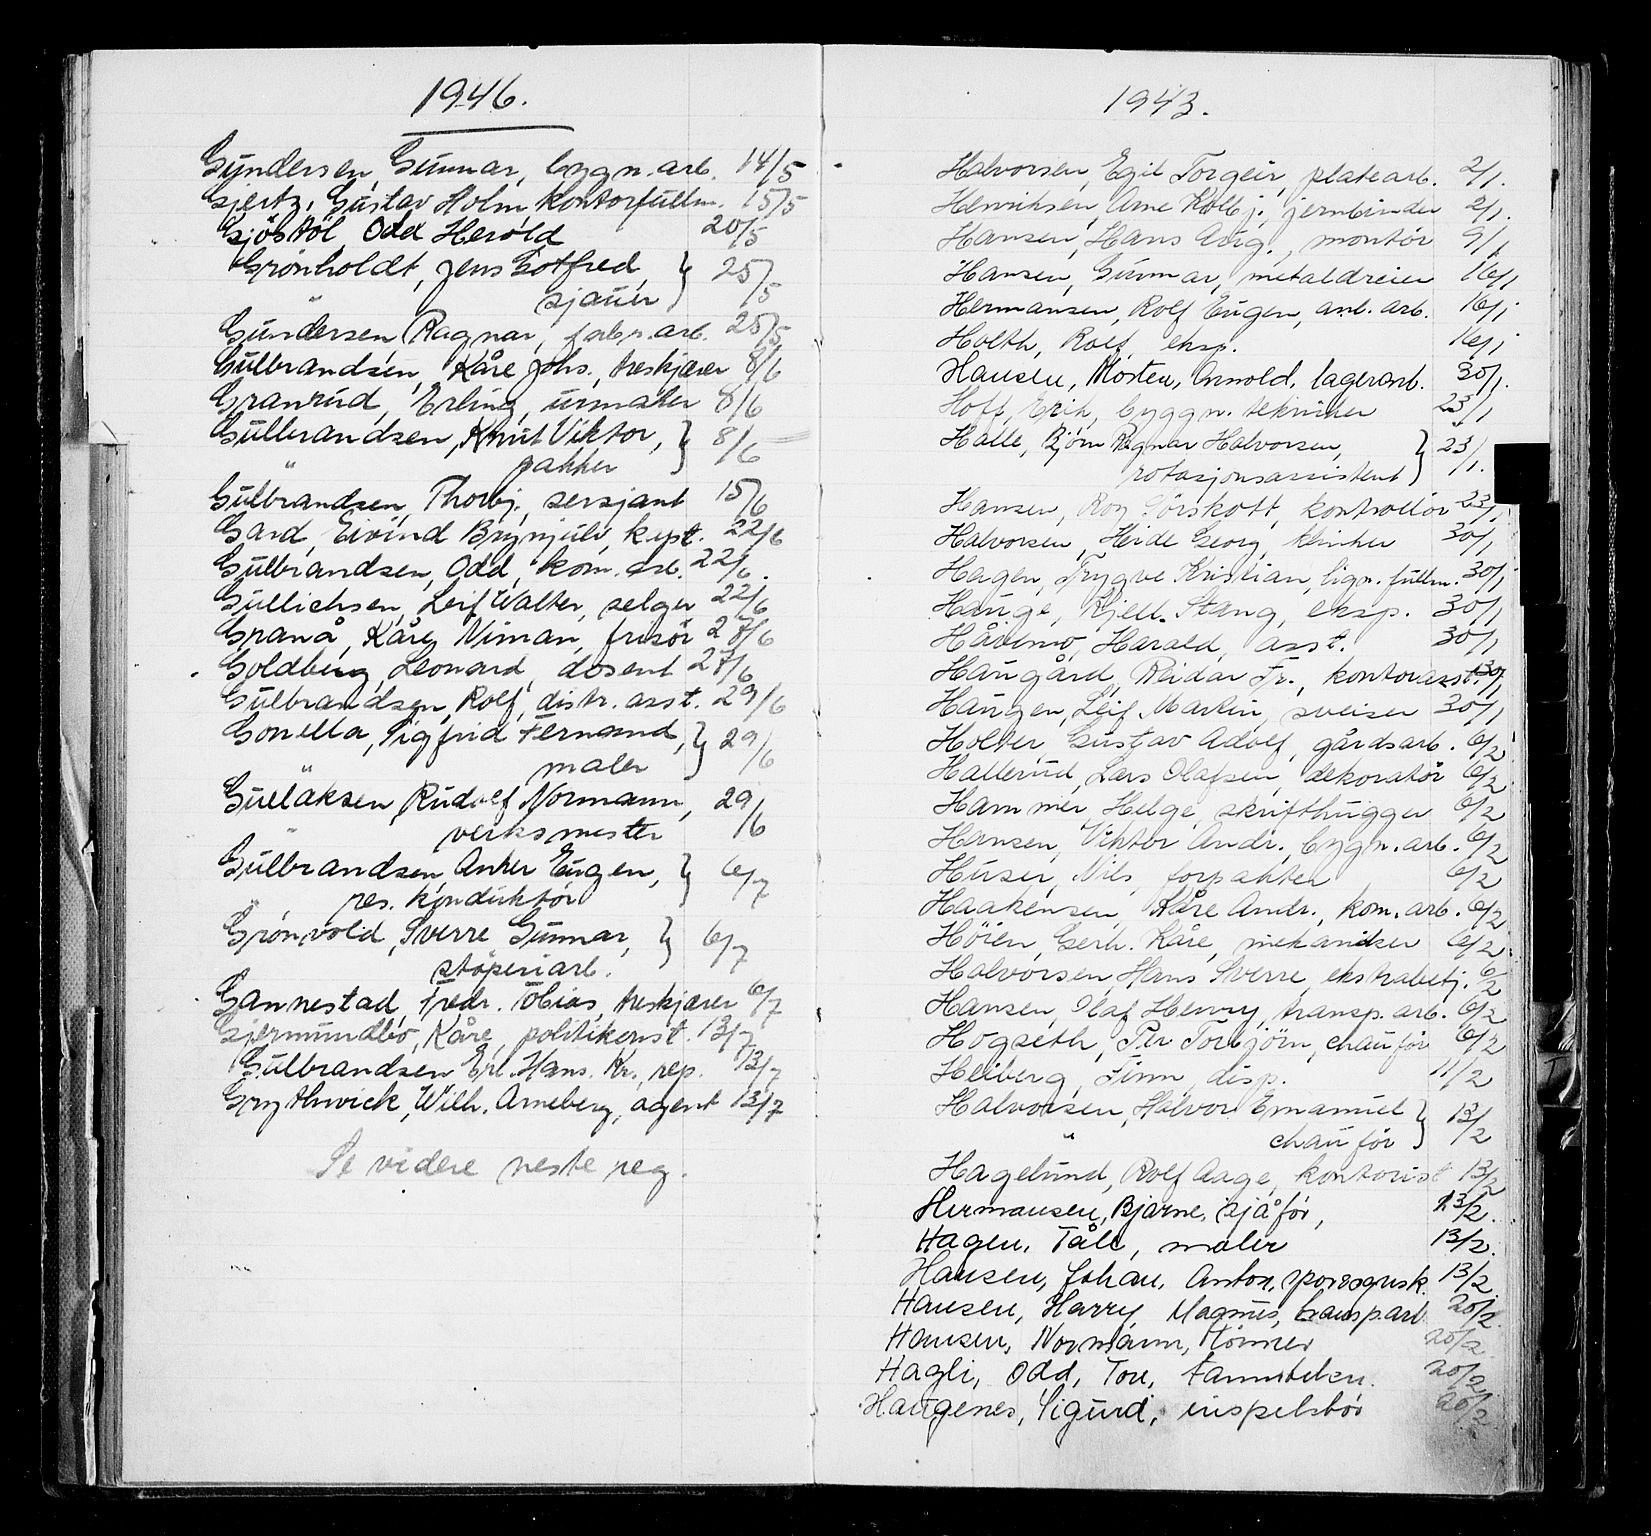 1946.
Gundersen, Gunnar, bygn.arb. 14/5
Gjertz, Gustav Holm kontorfullm. 15/5
Gjöstöl, Odd Herold 20/5
Grönholdt, Jens Gotfred, } 25/5
sjauer
Gundersen, Ragnar, fabr.arb. 25/5
Gulbrandsen, Kåre Johs., treskjærer 8/6
Granrud, Erling, urmaker 8/6
Gulbrandsen, Knut Viktor, } 8/6
pakker
Gulbrandsen, Thorbj. sersjant 15/6
Gard, Eivind Brynjulv, kapt. 22/6
Gulbrandsen, Odd, kom. arb. 22/6.
Gullichsen, Leif Walter, selger 22/6
Granå, Kåre Niman, frisör 27/6
Goldberg, Leonard, dosent 27/6
Gulbrandsen, Rolf, distr. asst. 29/6
Gonella, Sigfrid Fernand, } 29/6
maler
Gulläksen, Rudolf Normann, 29/6
verksmester
Gulbrandsen, Anker Eugen, } 6/7
res. konduktör
Grönvold, Sverre Gunnar, } 6/7
støperiarb.
Gannestad, Fredr. Tobias, treskjærer 6/7
Gjermundbo, Kåre, politikonst. 13/7
Gulbrandsen Erl. Hans. Kr., rep. 13/7
Grythwick, Wilh. Arneberg, agent 13/7
Se videre neste reg.
1943.
Halvorsen, Egil Torgeir, platearb. 2/1.
Henriksen, Arne Kolbj. jernbinder 2/1.
Hansen, Hans Aug., montör 9/1
Hansen, Gunnar, metaldreier 16/1
Hermansen, Rolf Eugen, anl. arb. 16/1
Holth, Rolf, eksp. 16/1
Hansen, Morten, Arnold, lagerarb. 30/1.
Hoff, Erik, byggn. tekniker 23/1
Halle, Bjørn Ragnar Halvorsen, } 23/1.
rotasjonsassistent
Hansen, Roy Sörskott, kontrollör 23/1
Halvorsen, Georg, klinker 30/1
Hagen, Trygve Kristian, lign. fullm. 30/1
Hauge, Kjell Stang, eksp. 30/1
Håvimo, Harald, asst. 30/1
Haugård, Reidar Fr., kontorasst. 30/1
Haugen, Leif Martin, sveiser 30/1
Holter, Gustav Adolf, gårdsarb. 6/2
Hallerud, Lars Olafsen, dekoratör 6/2
Hammer, Helge, skrifthugger 6/2
Hansen, Viktor Andr., bygn. arb. 6/2
Huser, Nils, forpakter 6/2
Haakensen, Kåre Andr., kom. arb. 6/2
Höien, Gerh. Kåre, mekaniker 6/2
Halvorsen, Hans Sverre, ekstrabetj. 6/2
Hansen, Olaf Henry, transp. arb. 6/2
Hogseth, Per Torbjörn, chauför 6/2
Heiberg, Finn, disp. 11/2
Halvorsen, Halvor Emanuel } 13/2
chauför
Hagelund, Rolf Aage, kontorist 13/2
Hermansen, Bjarne, sjåför, 13/2.
Hagen, Tåle, maler 13/2.
Hansen, Johan, Anton, sporvognsk. 13/2.
Hansen, Harry, Magnus, transp.arb 20/2.
Hansen, Normann, tömrer 20/2.
Hagli, Odd, Tore, tanntekn. 20/2.
Haugenes, Sigurd, inspektör 20/2.